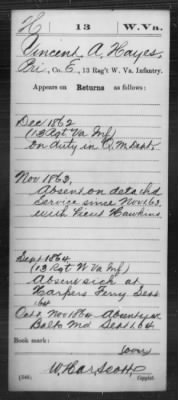 H 13 W.Va.
Vincent A. Hayes,
Pri, Co. E, 13 Reg't W. Va. Infantry.
Appears on Returns as follows:
Dec 1862
(13 Rgt Va Inf)
on duty in Q.M. Dept.
Nov 1863,
Absent on detachd
service since Nov 1, 63
with Lieut Hawkins
Sept 1864
(13 Rgt W Va Inf)
Absent sick at
Harpers Ferry Sept
64
Oct & Nov 1864 Absent
Balto Md Sept 1, 64
Book mark:
(546) Copyist.